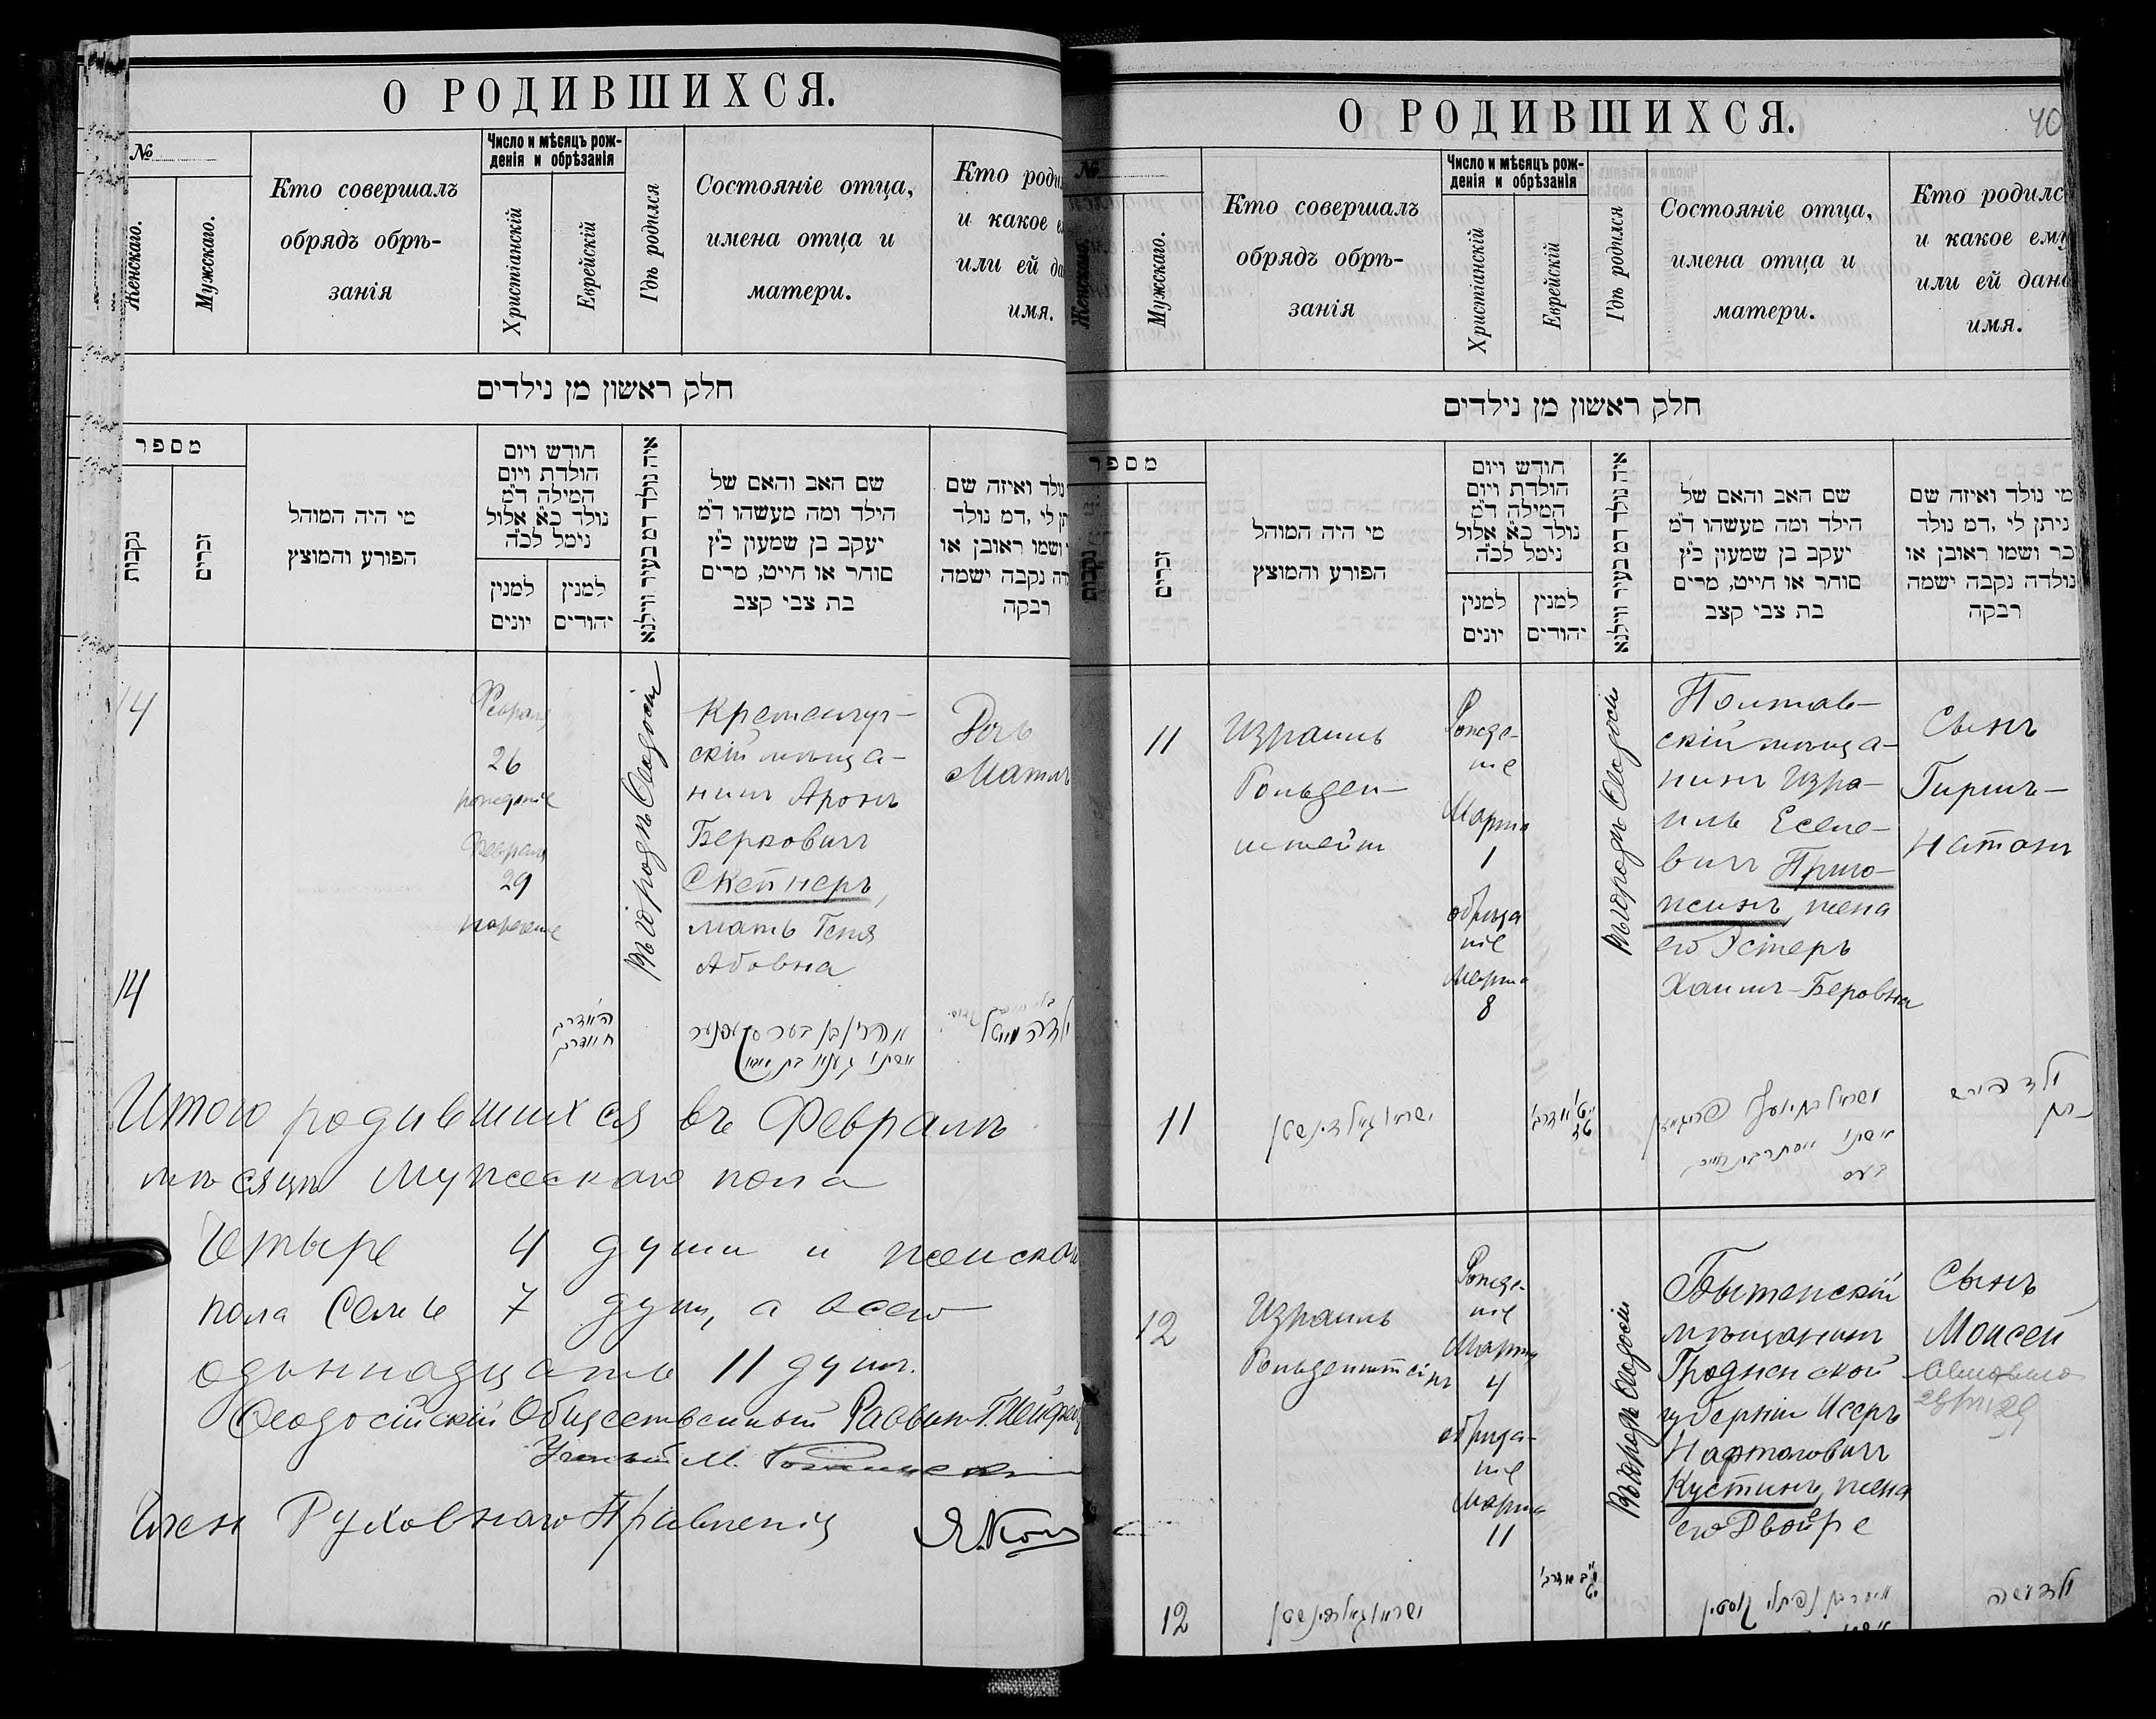 О РОДИВШИХСЯ.
№
Женскаго.
Мужскаго.
Кто совершалъ
обрядъ обрѣ-
занія
Число и мѣсяцъ рож-
денія и обрѣзанія
Христіанскій
Еврейскій
Гдѣ родился
Состояніе отца,
имена отца и
матери.
Кто роди
и какое е
или ей да
имя.
חלק ראשון מן נילדים
מספר
נקבות
זכרים
מי היה המוהל
הפורע והמוצץ
חודש ויום
הולדת ויום
המילה ד״מ
נולד כ״א אלול
נימל לכ״ה
למנין
יונים
למנין
יהודים
איה נולד דמ בעיר ווילנא
שם האב והאם של
הילד ומה מעשהו ד״מ
יעקב בן שמעון כ״ץ
סוחר או חייט, מרים
בת צבי קצב
נולד ואיזה שם
תן לי ,דמ נולד
ושמו ראובן או
דה נקבה ישמה
רבקה
14
Февраля
26
рожденіе
Февраля
29
нареченіе
Въ городѣ Ѳеодосіи
Кременчуг-
скій мѣща-
нинъ Аронъ
Берковичъ
Скепнеръ,
мать Геня
Абовна
Дочь
Матля
14
Итого родившихся въ Февралѣ
мѣсяцѣ мужескаго пола
Четыре 4 души и женскаго
пола Семь 7 душ, а всего
одиннадцать 11 душ.
Ѳеодосійскій Общественный Раввин
Ученый М.
Член Духовнаго Правленія
О РОДИВШИХСЯ.
40
№
Женскаго.
Мужскаго.
Кто совершалъ
обрядъ обрѣ-
занія
Число и мѣсяцъ рож-
денія и обрѣзанія
Христіанскій
Еврейскій
Гдѣ родился
Состояніе отца,
имена отца и
матери.
Кто родилс
и какое ему
или ей дано
имя.
חלק ראשון מן נילדים
מספר
נקבות
זכרים
מי היה המוהל
הפורע והמוצץ
חודש ויום
הולדת ויום
המילה ד״מ
נולד כ״א אלול
נימל לכ״ה
למנין
יונים
למנין
יהודים
איה נולד דמ בעיר ווילנא
שם האב והאם של
הילד ומה מעשהו ד״מ
יעקב בן שמעון כ״ץ
סוחר או חייט, מרים
בת צבי קצב
מי נולד ואיזה שם
ניתן לי ,דמ נולד
כר ושמו ראובן או
נולדה נקבה ישמה
רבקה
11
Израиль
Гольден-
штейн
Рожде-
ніе
Марта
1
обрѣза
ніе
Марта
8
Въ городѣ Ѳеодосіи
Полтав-
скій мѣща-
нинъ Изра-
иль Еселе-
вичъ Приго-
жинъ, жена
его Эстеръ
Хаимъ-Беровна
Сынъ
Гиршъ-
Натанъ
11
12
Израиль
Гольденштейнъ
Рожде-
ніе
Марта
4
обрѣза-
ніе
Марта
11
Въ городѣ Ѳеодосіи
Бытенскій
мѣщанинъ
Гродненской
губерніи Исеръ
Нафтоловичъ
Кустинъ, жена
его Двойре
Сынъ
Моисей
12